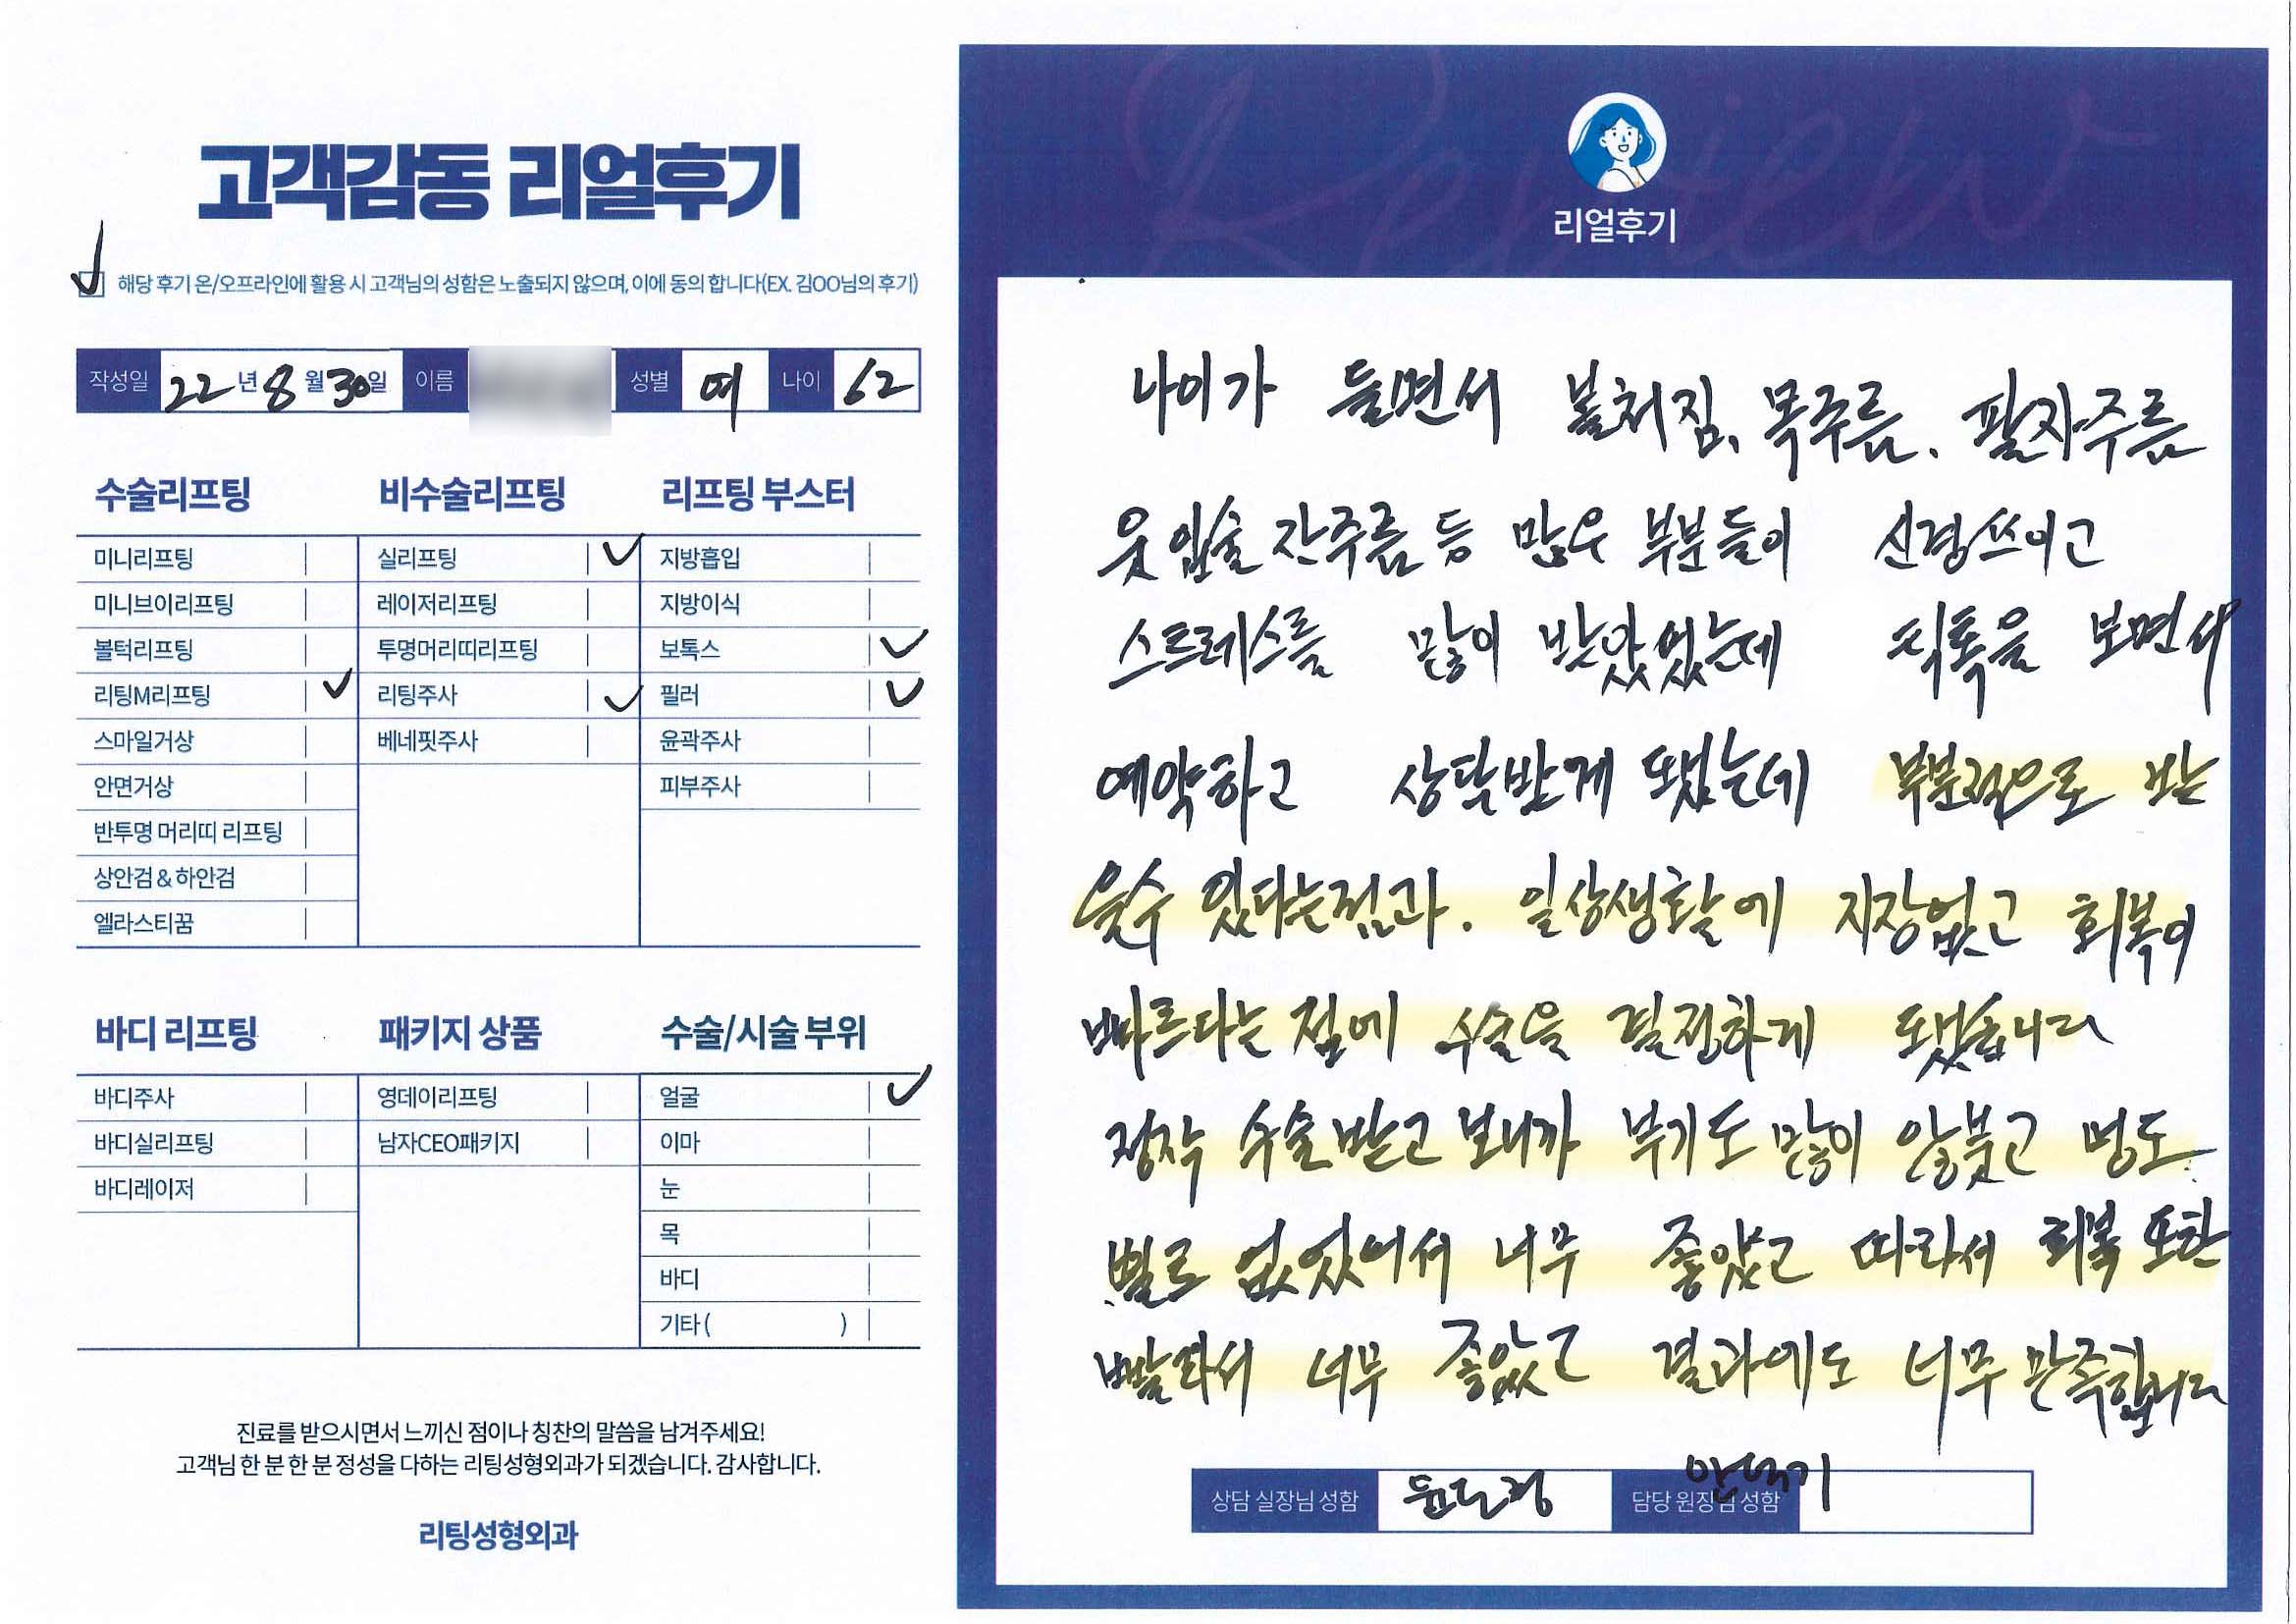 고객감동 리얼후기
해당 후기 온/오프라인에 활용 시 고객님의 성함은 노출되지 않으며, 이에 동의 합니다(EX. 김OO님의 후기)
작성일 22년 8월 30일 이름 성별 여 나이 62
수술리프팅
미니리프팅
미니브이리프팅
볼턱리프팅
리팅M리프팅
스마일거상
안면거상
반투명 머리띠 리프팅
상안검 & 하안검
엘라스티꿈
비수술리프팅
실리프팅
레이저리프팅
투명머리띠리프팅
리팅주사
베네핏주사
리프팅 부스터
지방흡입
지방이식
보톡스
필러
윤곽주사
피부주사
바디 리프팅
바디주사
바디실리프팅
바디레이저
패키지 상품
영데이리프팅
남자CEO패키지
수술/시술 부위
얼굴
이마
눈
목
바디
기타 ( )
진료를 받으시면서 느끼신 점이나 칭찬의 말씀을 남겨주세요!
고객님 한 분 한 분 정성을 다하는 리팅성형외과가 되겠습니다. 감사합니다.
리팅성형외과
Review
리얼후기
나이가 들면서 볼처짐, 목주름, 팔자주름
윗입술 잔주름 등 많은 부분들이 신경쓰이고
스트레스를 많이 받았었는데 틱톡을 보면서
예약하고 상담받게 됐는데 부분적으로 받
을수 있다는점과. 일상생활에 지장없고 회복이
빠르다는 점에 수술을 결정하게 됐습니다
정작 수술받고 보니까 부기도 많이 않붓고 멍도
별로 없었어서 너무 좋았고 따라서 회복 또한
빨라서 너무 좋았고 결과에도 너무 만족합니다
상담 실장님 성함
담당 원장님 성함